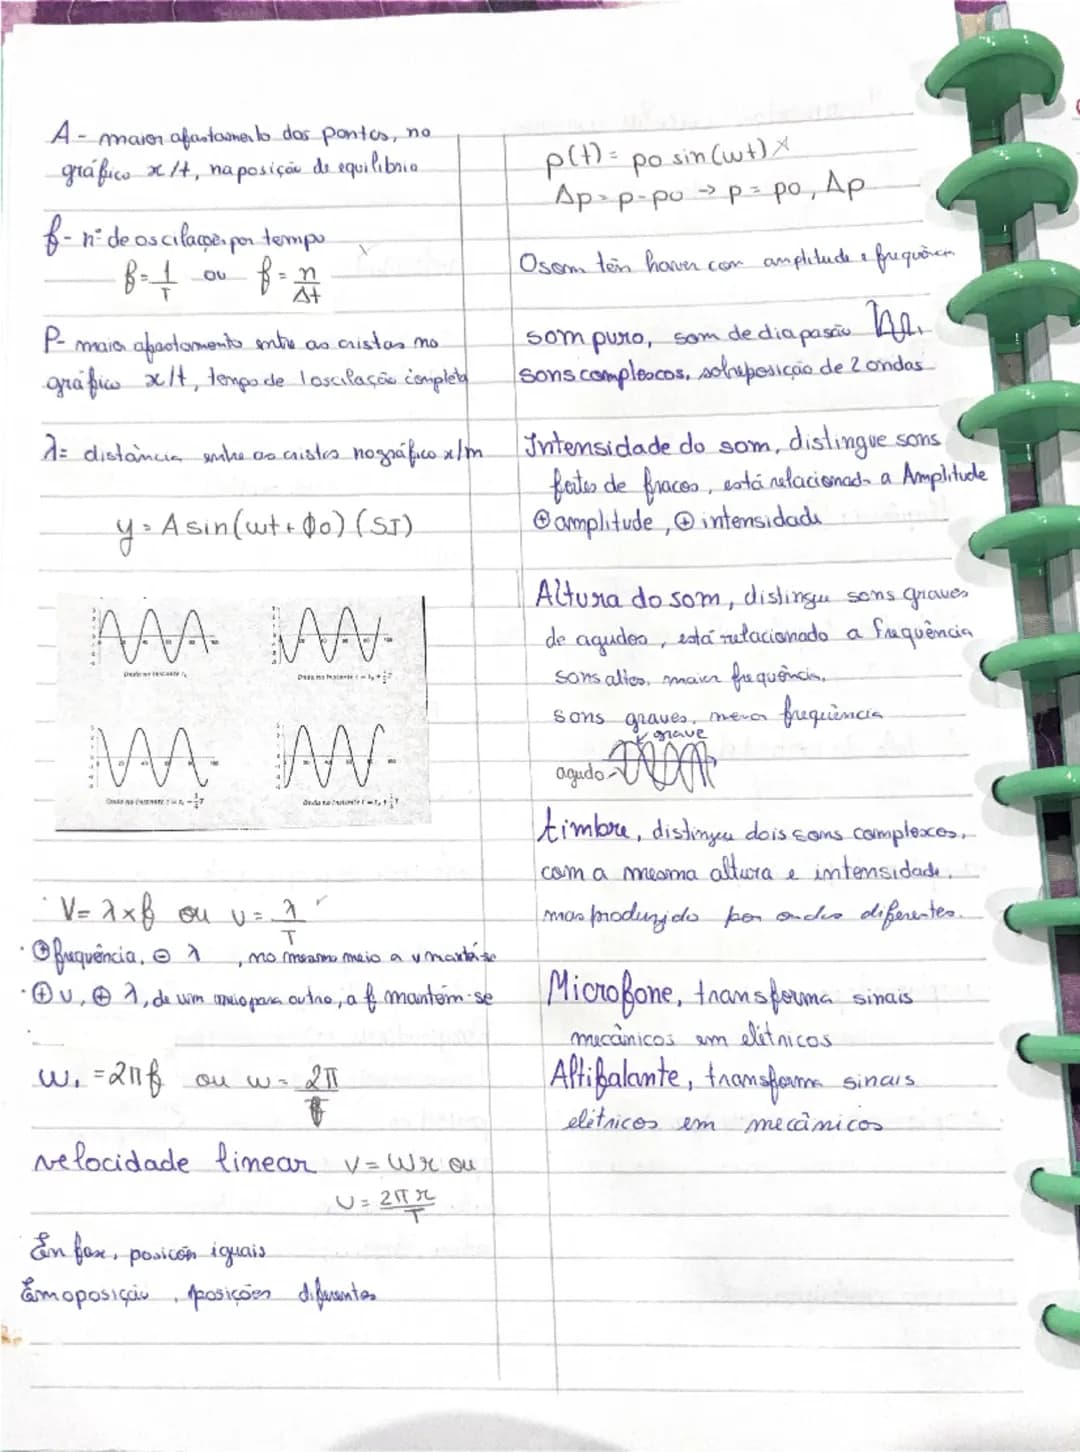 A - maior afastamento dos pontos, no
gráfico x/t, na posição de equilibrio
f - nº de oscilações por tempo
f = 1/T ou f = n/Δt
P- maior afastamento entre as cristas no
gráfico x/t, tempo de 1 oscilação completa
λ= distância entre as cristas no gráfico x/m
y = A sin(wt + ϕo) (SI)
Onda no instante t₀
V = λ×f ou v = λ/T
· ⊕ frequência, ⊖ λ , no mesmo meio a v mantém-se
· ⊕ v, ⊕ λ, de um meio para outro, a f mantém-se
w. = 2πf ou w = 2π/
velocidade linear v = wr ou
v = 2πr/T
Em fase, posicõn iguais
Em oposição , posições diferentes
p(t) = po sin(wt) x
Δp = p - po → p = po, Δp
O som têm haver com amplitude e frequência
som puro, som de diapasão
sons complexos, sobreposição de 2 ondas
Intensidade do som, distingue sons
fortes de fracos, está relacionada a Amplitude
⊕ amplitude , ⊕ intensidade
Altura do som, distingue sons graves
de agudos , está relacionado a frequência
sons altos, maior frequência,
sons graves, menor frequência
grave
agudo
timbre, distingue dois sons complexos,
com a mesma altura e intensidade,
mas produzido por ondas diferentes.
Microfone, transforma sinais
mecânicos em elétricos
Altifalante, transforma sinais
elétricos em mecânicos